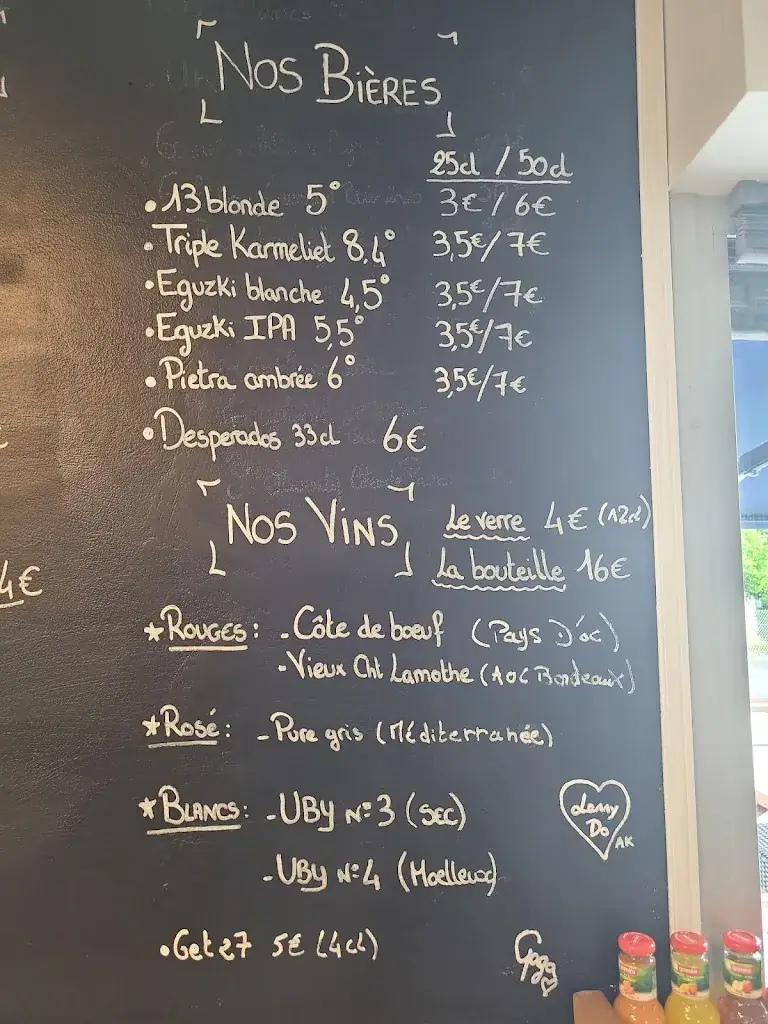 Nos Bières
25cl / 50cl
• 13 blonde 5° 3€ / 6€
• Triple Karmeliet 8,4° 3,5€/7€
• Eguzki blanche 4,5° 3,5€/7€
• Eguzki IPA 5,5° 3,5€/7€
• Pietra ambrée 6° 3,5€/7€
• Desperados 33cl 6€
Nos Vins
Le verre 4€ (12cl)
La bouteille 16€
4€
★ Rouges : - Côte de bœuf (Pays D'oc)
- Vieux Cht Lamothe (AOC Bordeaux)
★ Rosé : - Pure gris (Méditerranée)
★ Blancs : - UBY N°3 (SEC)
- UBY N°4 (Moelleux)
Do
AK
• Get 27 5€ (4cl)